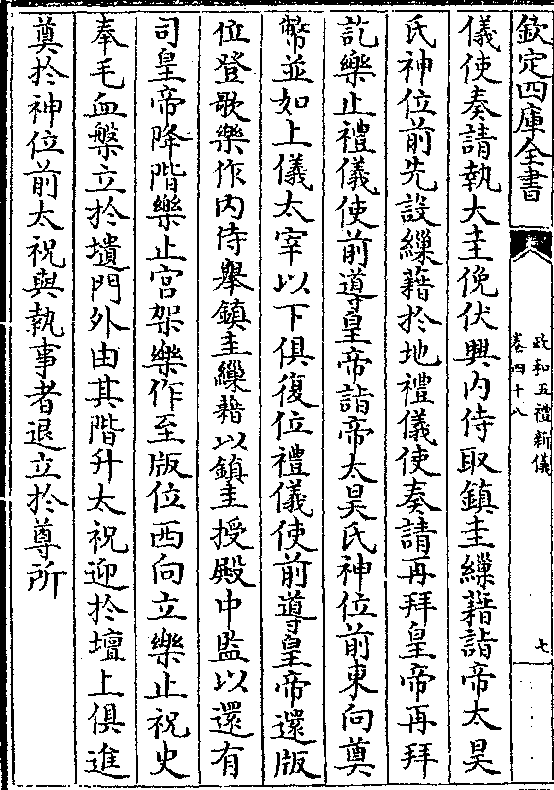 欽定四庫全書
政和五禮新儀
卷四十八
七
儀使奏請執大圭俛伏興内侍取鎮圭繅藉詣帝太昊
氏神位前先設繅藉於地禮儀使奏請再拜皇帝再拜
訖樂止禮儀使前導皇帝詣帝太昊氏神位前東向奠
幣並如上儀太宰以下俱復位禮儀使前導皇帝還版
位登歌樂作内侍舉鎮圭繅藉以鎮圭授殿中監以還有
司皇帝降階樂止宫架樂作至版位西向立樂止祝史
奉毛血槃立於壝門外由其階升太祝迎於壇上俱進
奠於神位前太祝與執事者退立於尊所